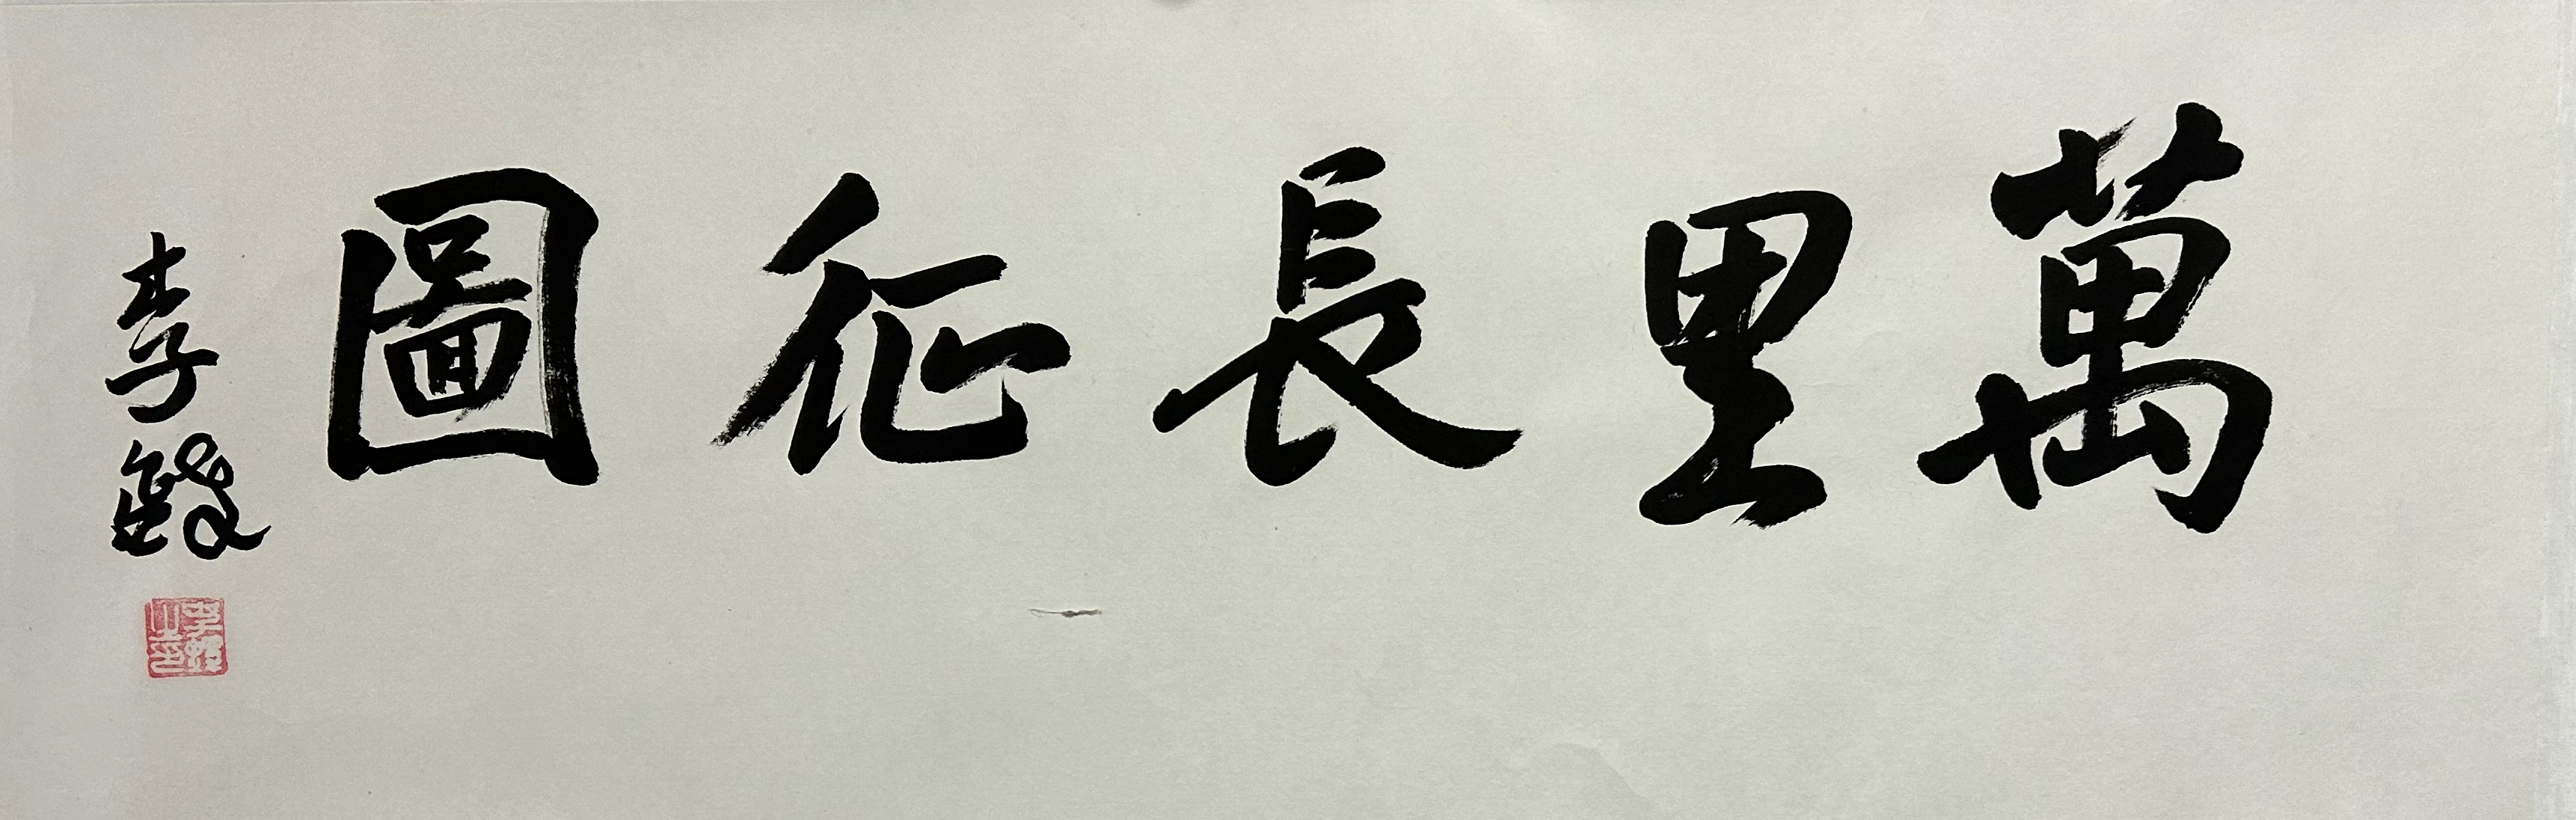 萬里長征圖
李